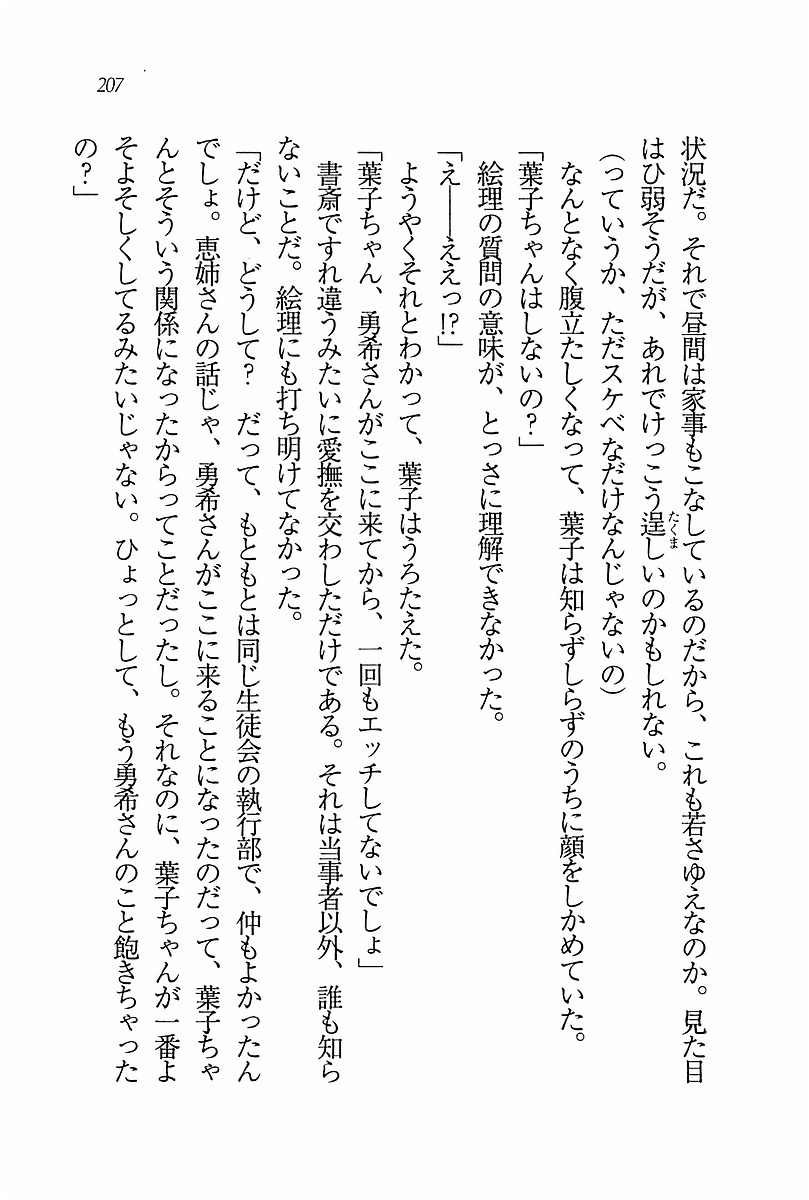 207
状況だ。それで昼間は家事もこなしているのだから、これも若さゆえなのか。見た目
はひ弱そうだが、あれでけっこう逞しいのかもしれない。
たくま
（っていうか、ただスケベなだけなんじゃないの）
なんとなく腹立たしくなって、葉子は知らずしらずのうちに顔をしかめていた。
「葉子ちゃんはしないの？」
絵理の質問の意味が、とっさに理解できなかった。
「え――ええっ!?」
ようやくそれとわかって、葉子はうろたえた。
「葉子ちゃん、勇希さんがここに来てから、一回もエッチしてないでしょ」
書斎ですれ違うみたいに愛撫を交わしただけである。それは当事者以外、誰も知ら
ないことだ。絵理にも打ち明けてなかった。
「だけど、どうして？　だって、もともとは同じ生徒会の執行部で、仲もよかったん
でしょ。恵姉さんの話じゃ、勇希さんがここに来ることになったのだって、葉子ちゃ
んとそういう関係になったからってことだったし。それなのに、葉子ちゃんが一番よ
そよそしくしてるみたいじゃない。ひょっとして、もう勇希さんのこと飽きちゃった
の？」